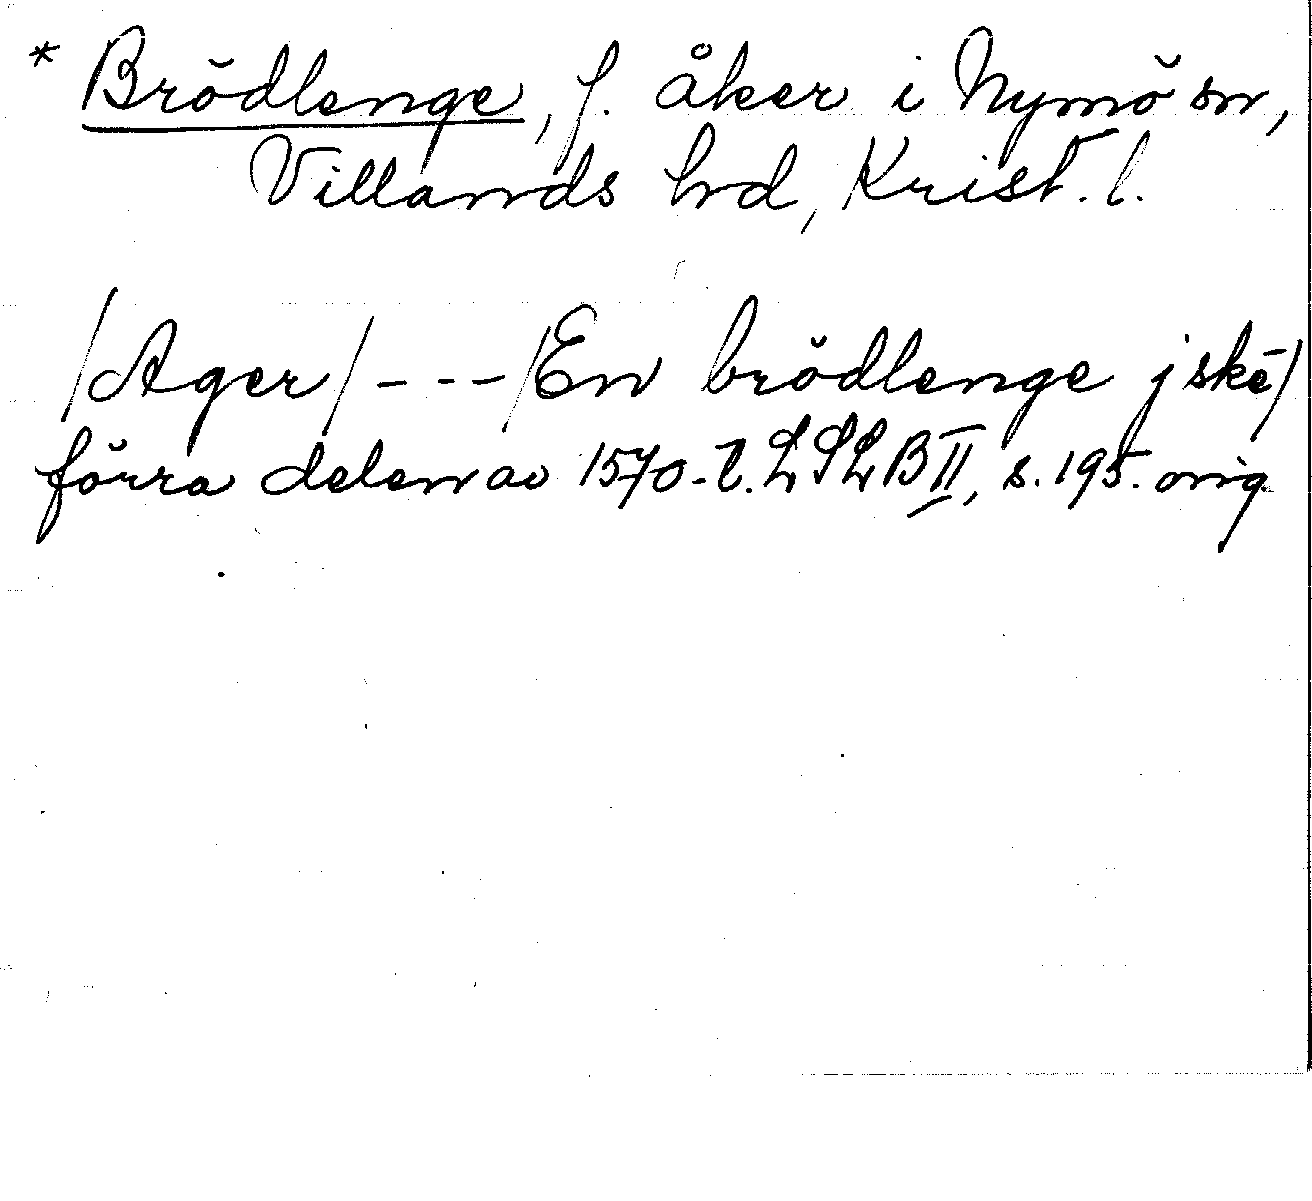 * Brödlenge, f. åker i Nymö sn,
Villands hd, Krist. l.
/Ager/ - - - /En brödlenge j skē/
förra delen av 1570-t. LSLB II, s. 195. orig.